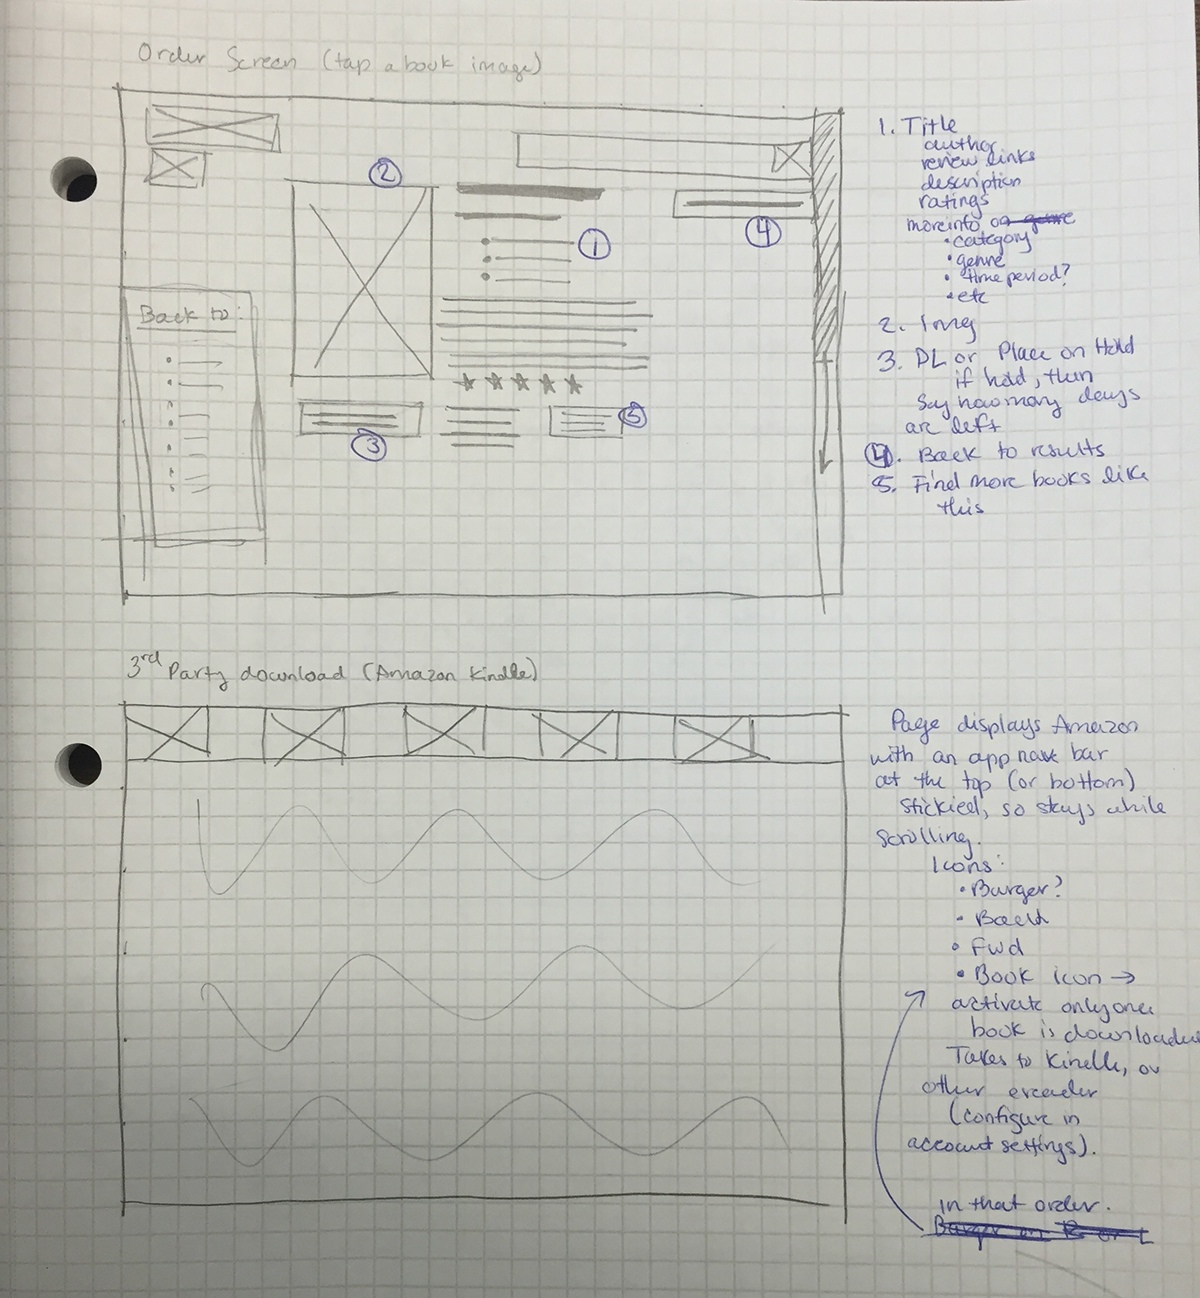 Order Screen (tap a book image)
2
1
4
Back to:
3
5
1. Title
author
review links
description
ratings
more info on genre
• category
• genre
• time period?
• etc
2. Img
3. DL or Place on Hold
if hold, then
Say how many days
are left
4. Back to results
5. Find more books like
this
3rd Party download (Amazon Kindle)
Page displays Amazon
with an app nav bar
at the top (or bottom)
Stickied, so stays while
scrolling.
Icons:
• Burger?
• Back
• Fwd
• Book icon →
activate only once
book is downloaded
Takes to Kindle, or
other ereader
(configure in
account settings).
in that order.
Burger on R or L